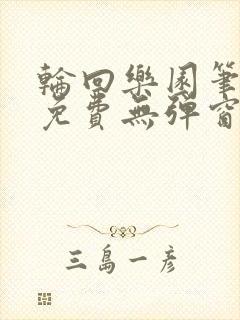 輪回樂園筆
免費無彈窗
三島一彥